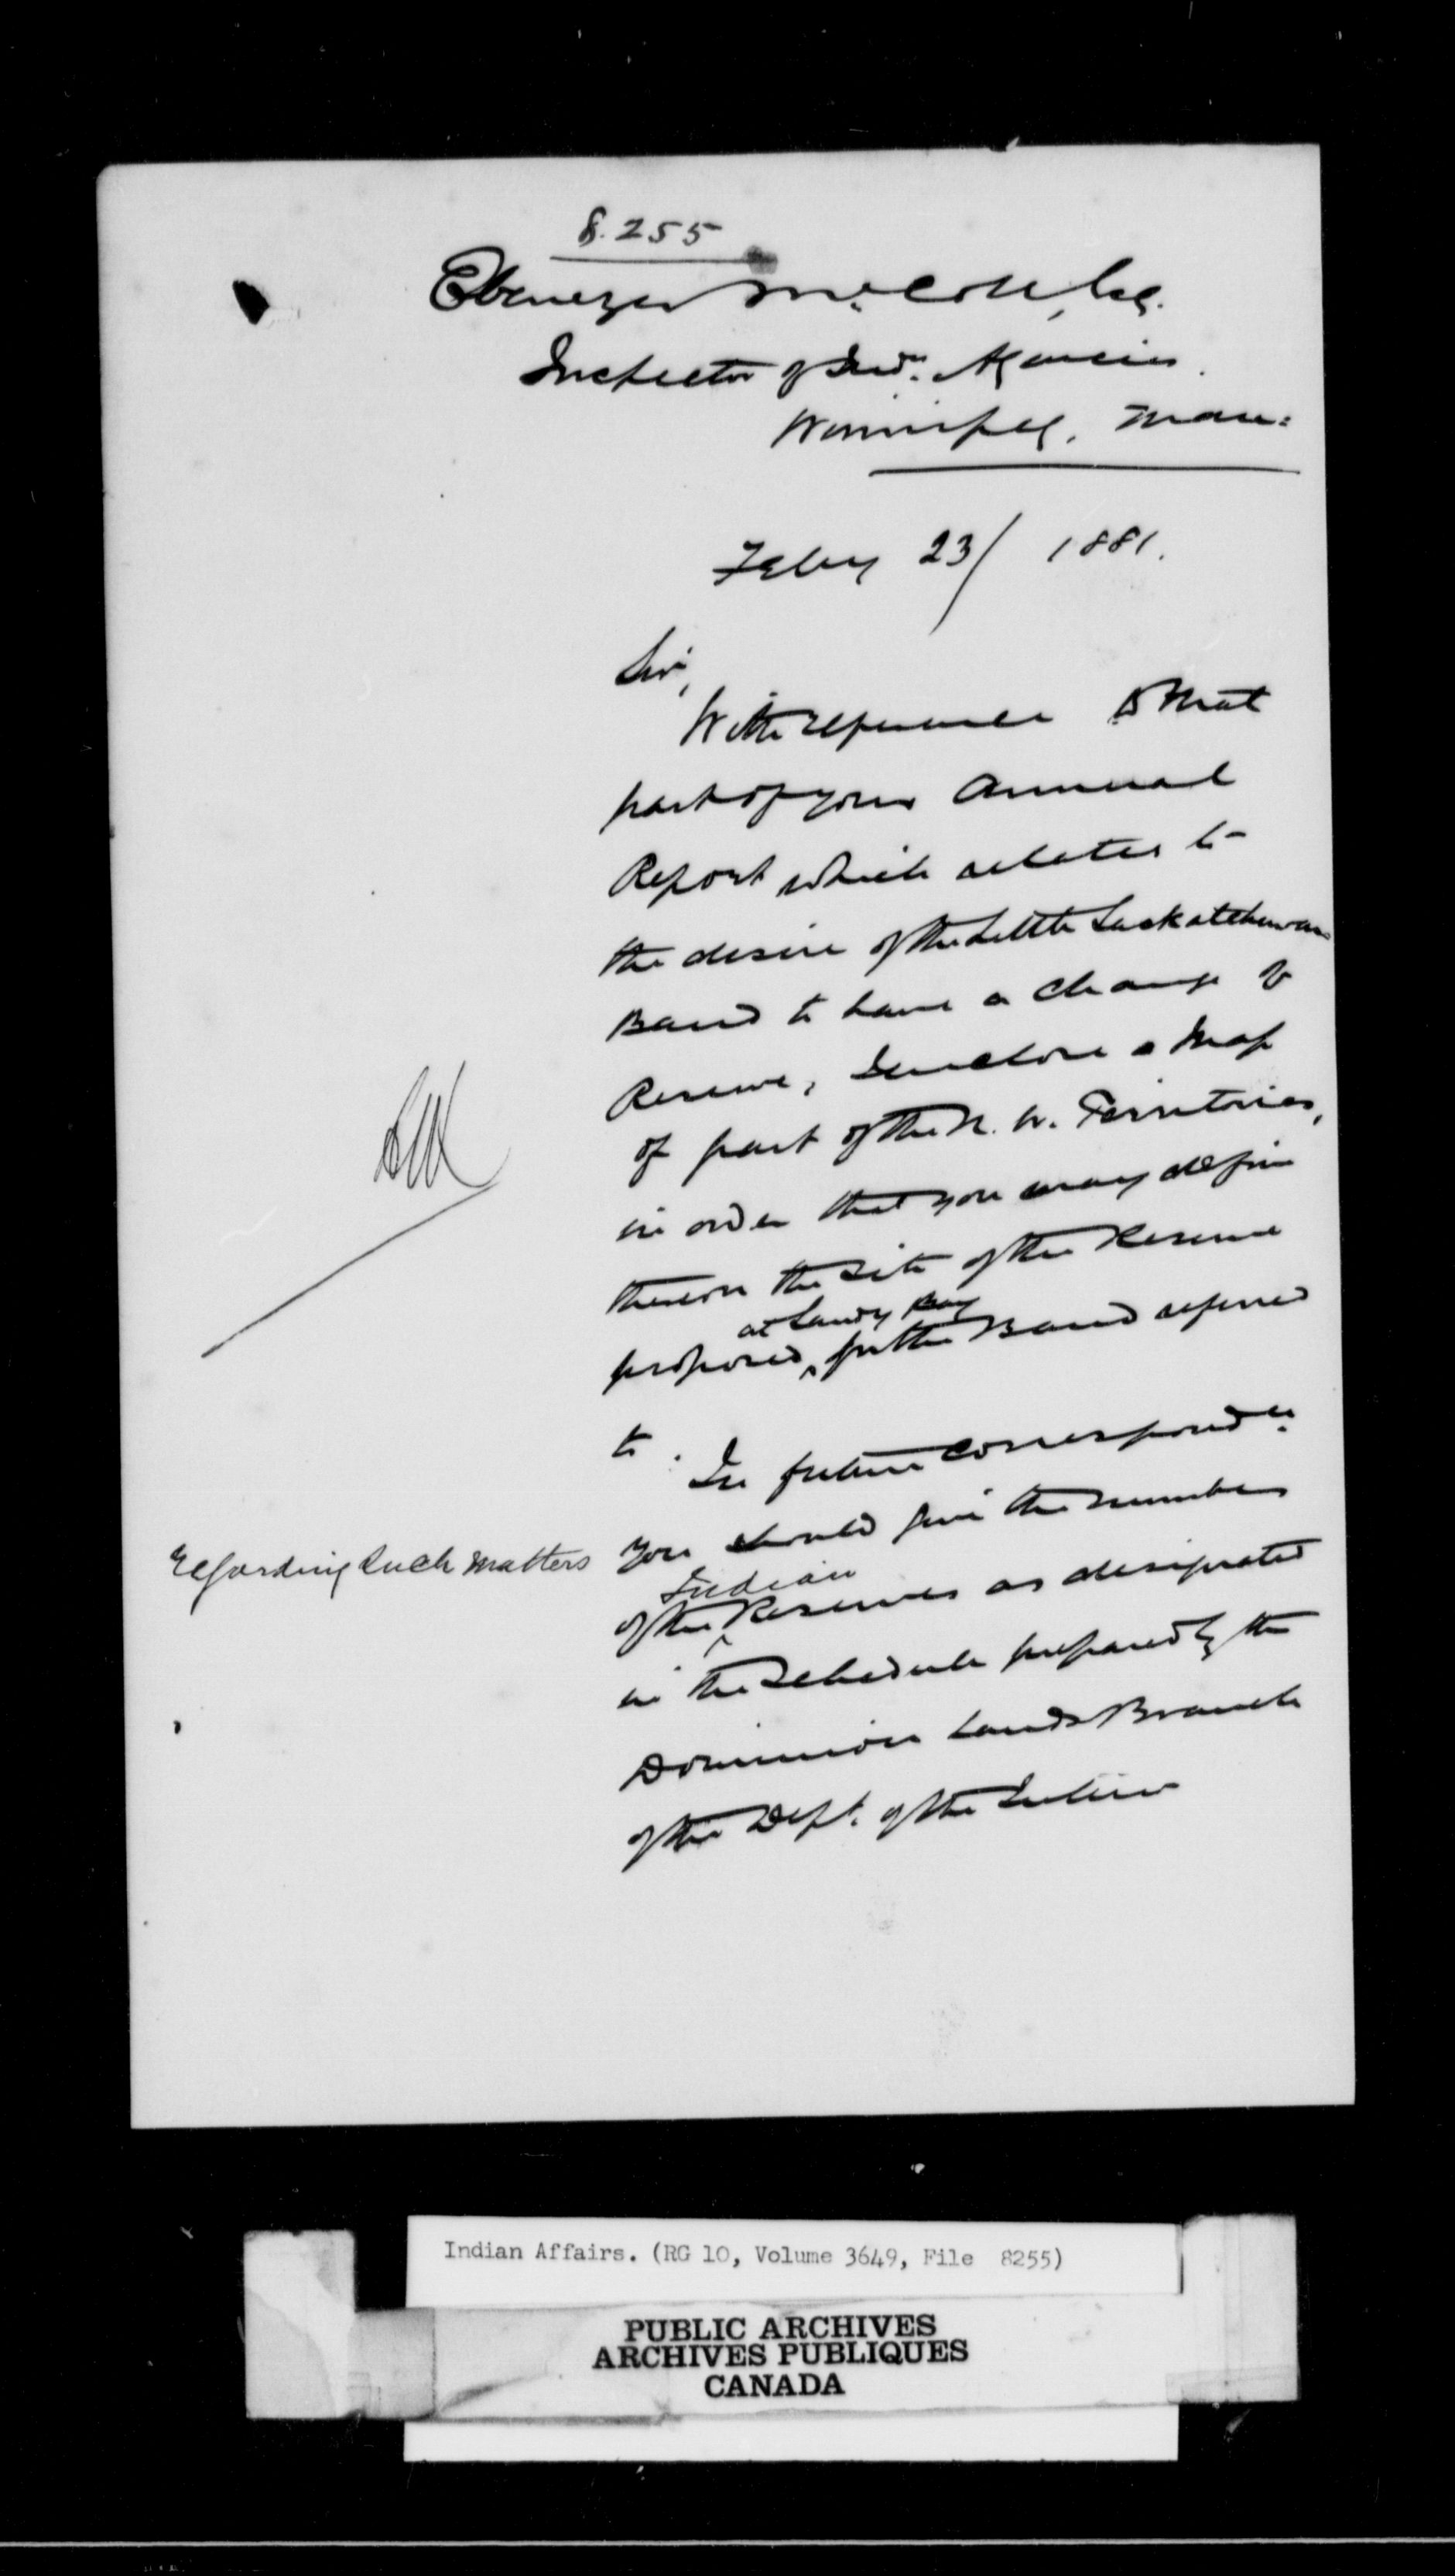 8.255
Ebenezer McColl, Esq.
Inspector of Indn. Agencies.
Winnipeg, Man:
Feby 23/ 1881.
Sir,
With reference to that
part of your Annual
Report which relates to
the desire of the Little Saskatchewan
Band to have a change of
Reserve, I enclose a Map
of part of the N. W. Territories,
in order that you may define
thereon the site of the Reserve
at Sandy Bay
proposed ^ for the Band referred
to.
In future correspondce.
regarding such matters
you should give the numbers
Indian
of the ^ Reserves as designated
in the Schedule prepared by the
Dominion Lands Branch
of the Dept. of the Interior
Indian Affairs. (RG 10, Volume 3649, File 8255)
PUBLIC ARCHIVES
ARCHIVES PUBLIQUES
CANADA